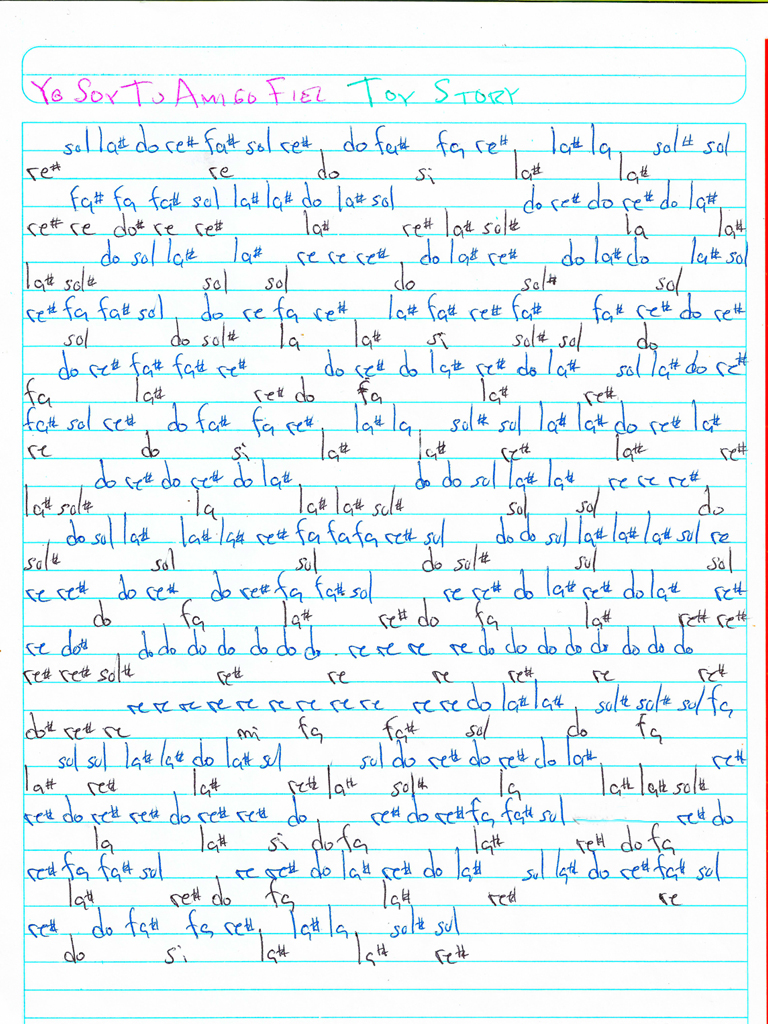 Yo Soy Tu Amigo Fiel Toy Story
sol la# do re# fa# sol re#, do fa# fa re#, la# la, sol# sol
re# re do si la# la#
fa# fa fa# sol la# la# do la# sol do re# do re# do la#
re# re do# re re# la# re# la# sol# la la#
do sol la# la# re re re#, do la# re# do la# do la# sol
la# sol# sol sol do sol# sol
re# fa fa# sol, do re fa re#, la# fa# re# fa# fa# re# do re#
sol do sol# la la# si sol# sol do
do re# fa# fa# re# do re# do la# re# do la# sol la# do re#
fa la# re# do fa la# re#
fa# sol re#, do fa# fa re#, la# la, sol# sol la# la# do re# la#
re do si la# la# re# la# re#
do re# do re# do la#, do do sol la# la# re re re#,
la# sol# la la# la# sol# sol sol do
do sol la# la# la# re# fa fa fa re# sol do do sol la# la# la# sol re
sol# sol sol do sol# sol sol
re re# do re# do re# fa fa# sol re re# do la# re# do la# re#
do fa la# re# do fa la# re# re#
re do#, do do do do do do do. re re re re do do do do do do do do
re# re# sol# re# re re# re re#
re re re re re re re re re re re re do la# la#, sol# sol# sol fa
do# re# re mi fa fa# sol do fa
sol sol la# la# do la# sol sol do re# do re# do la#, re#
la# re# la# re# la# sol# la la# la# sol#
re# do re# re# do re# re# do re# do re# fa fa# sol re# do
la la# si do fa la# re# do fa
re# fa fa# sol re re# do la# re# do la# sol la# do re# fa# sol
la# re# do fa la# re# re
re# do fa# fa re#, la# la, sol# sol
do si la# la# re#